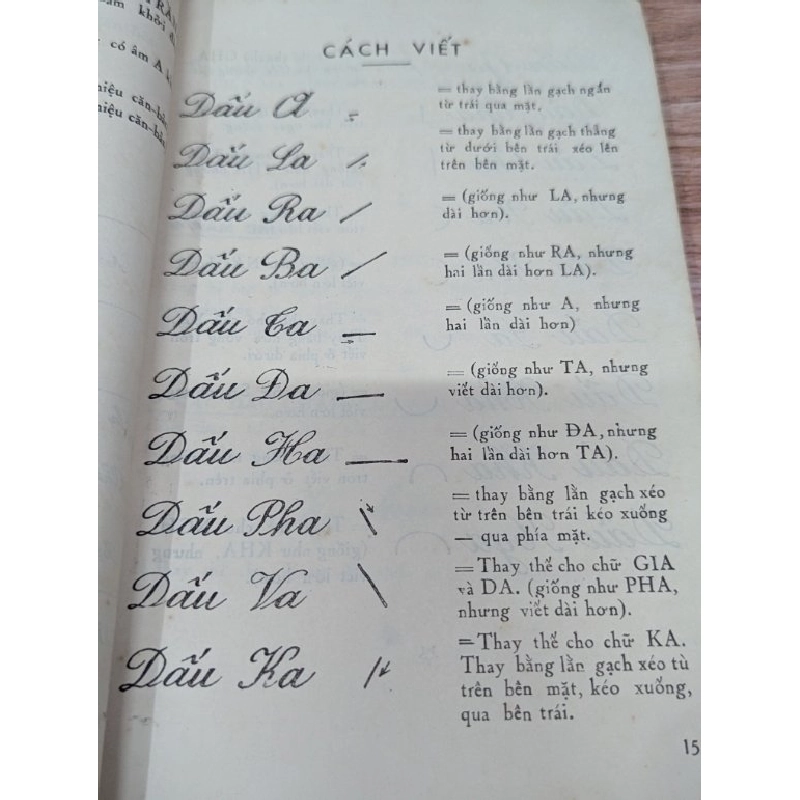 CÁCH VIẾT
khởi đ
có âm A k
hiệu căn-b
hiệu căn-bả
Dấu A = thay bằng lằn gạch ngắn
từ trái qua mặt.
Dấu La = thay bằng lằn gạch thẳng
từ dưới bên trái xéo lên
trên bên mặt.
Dấu Ra = (giống như LA, nhưng
dài hơn).
Dấu Ba = (giống như RA, nhưng
hai lần dài hơn LA).
Dấu Ta = (giống như A, nhưng
hai lần dài hơn)
Dấu Đa = (giống như TA, nhưng
viết dài hơn).
Dấu Ha = (giống như ĐA, nhưng
hai lần dài hơn TA).
Dấu Pha = thay bằng lằn gạch xéo
từ trên bên trái kéo xuống
— qua phía mặt.
Dấu Va = Thay thế cho chữ GIA
và DA. (giống như PHA,
nhưng viết dài hơn).
Dấu Ka = Thay thế cho chữ KA.
Thay bằng lằn gạch xéo từ
trên bên mặt, kéo xuống,
qua bên trái.
15